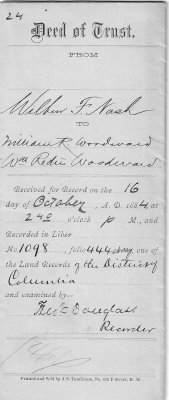 24
Deed of Trust.
FROM
Wilbur F. Nash
TO
William R. Woodward
Wm Redin Woodward
Received for Record on the 16
day of October, A. D. 1884, at
2 40 o'clock P M., and
Recorded in Liber
No 1098, folio 444 et seq, one of
the Land Records of the District of
Columbia
and examined by—
Fredk Douglass
Recorder
Printed and Sold by J. S. Tomlinson, No. F Street, N. W.